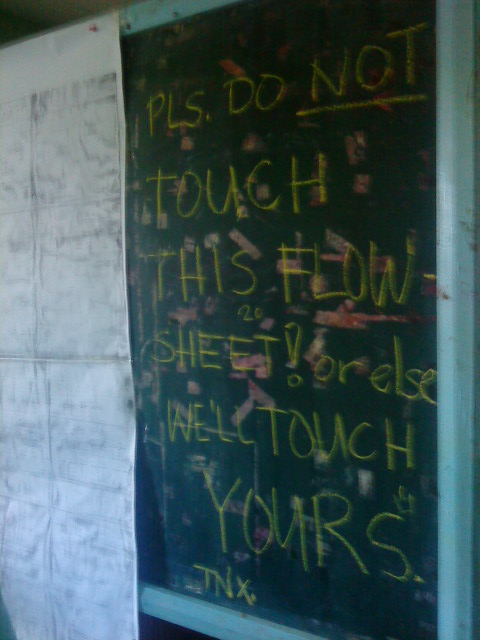 PLS. DO NOT
TOUCH
THIS FLOW
20
SHEET! or else
WE'LL TOUCH
YOURS.
TNX.